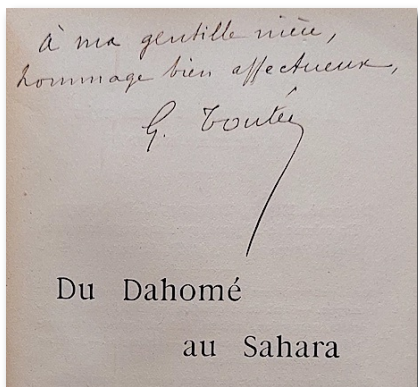 à ma gentille nièce,
hommage bien affectueux,
G. Toutée
Du Dahomé
au Sahara